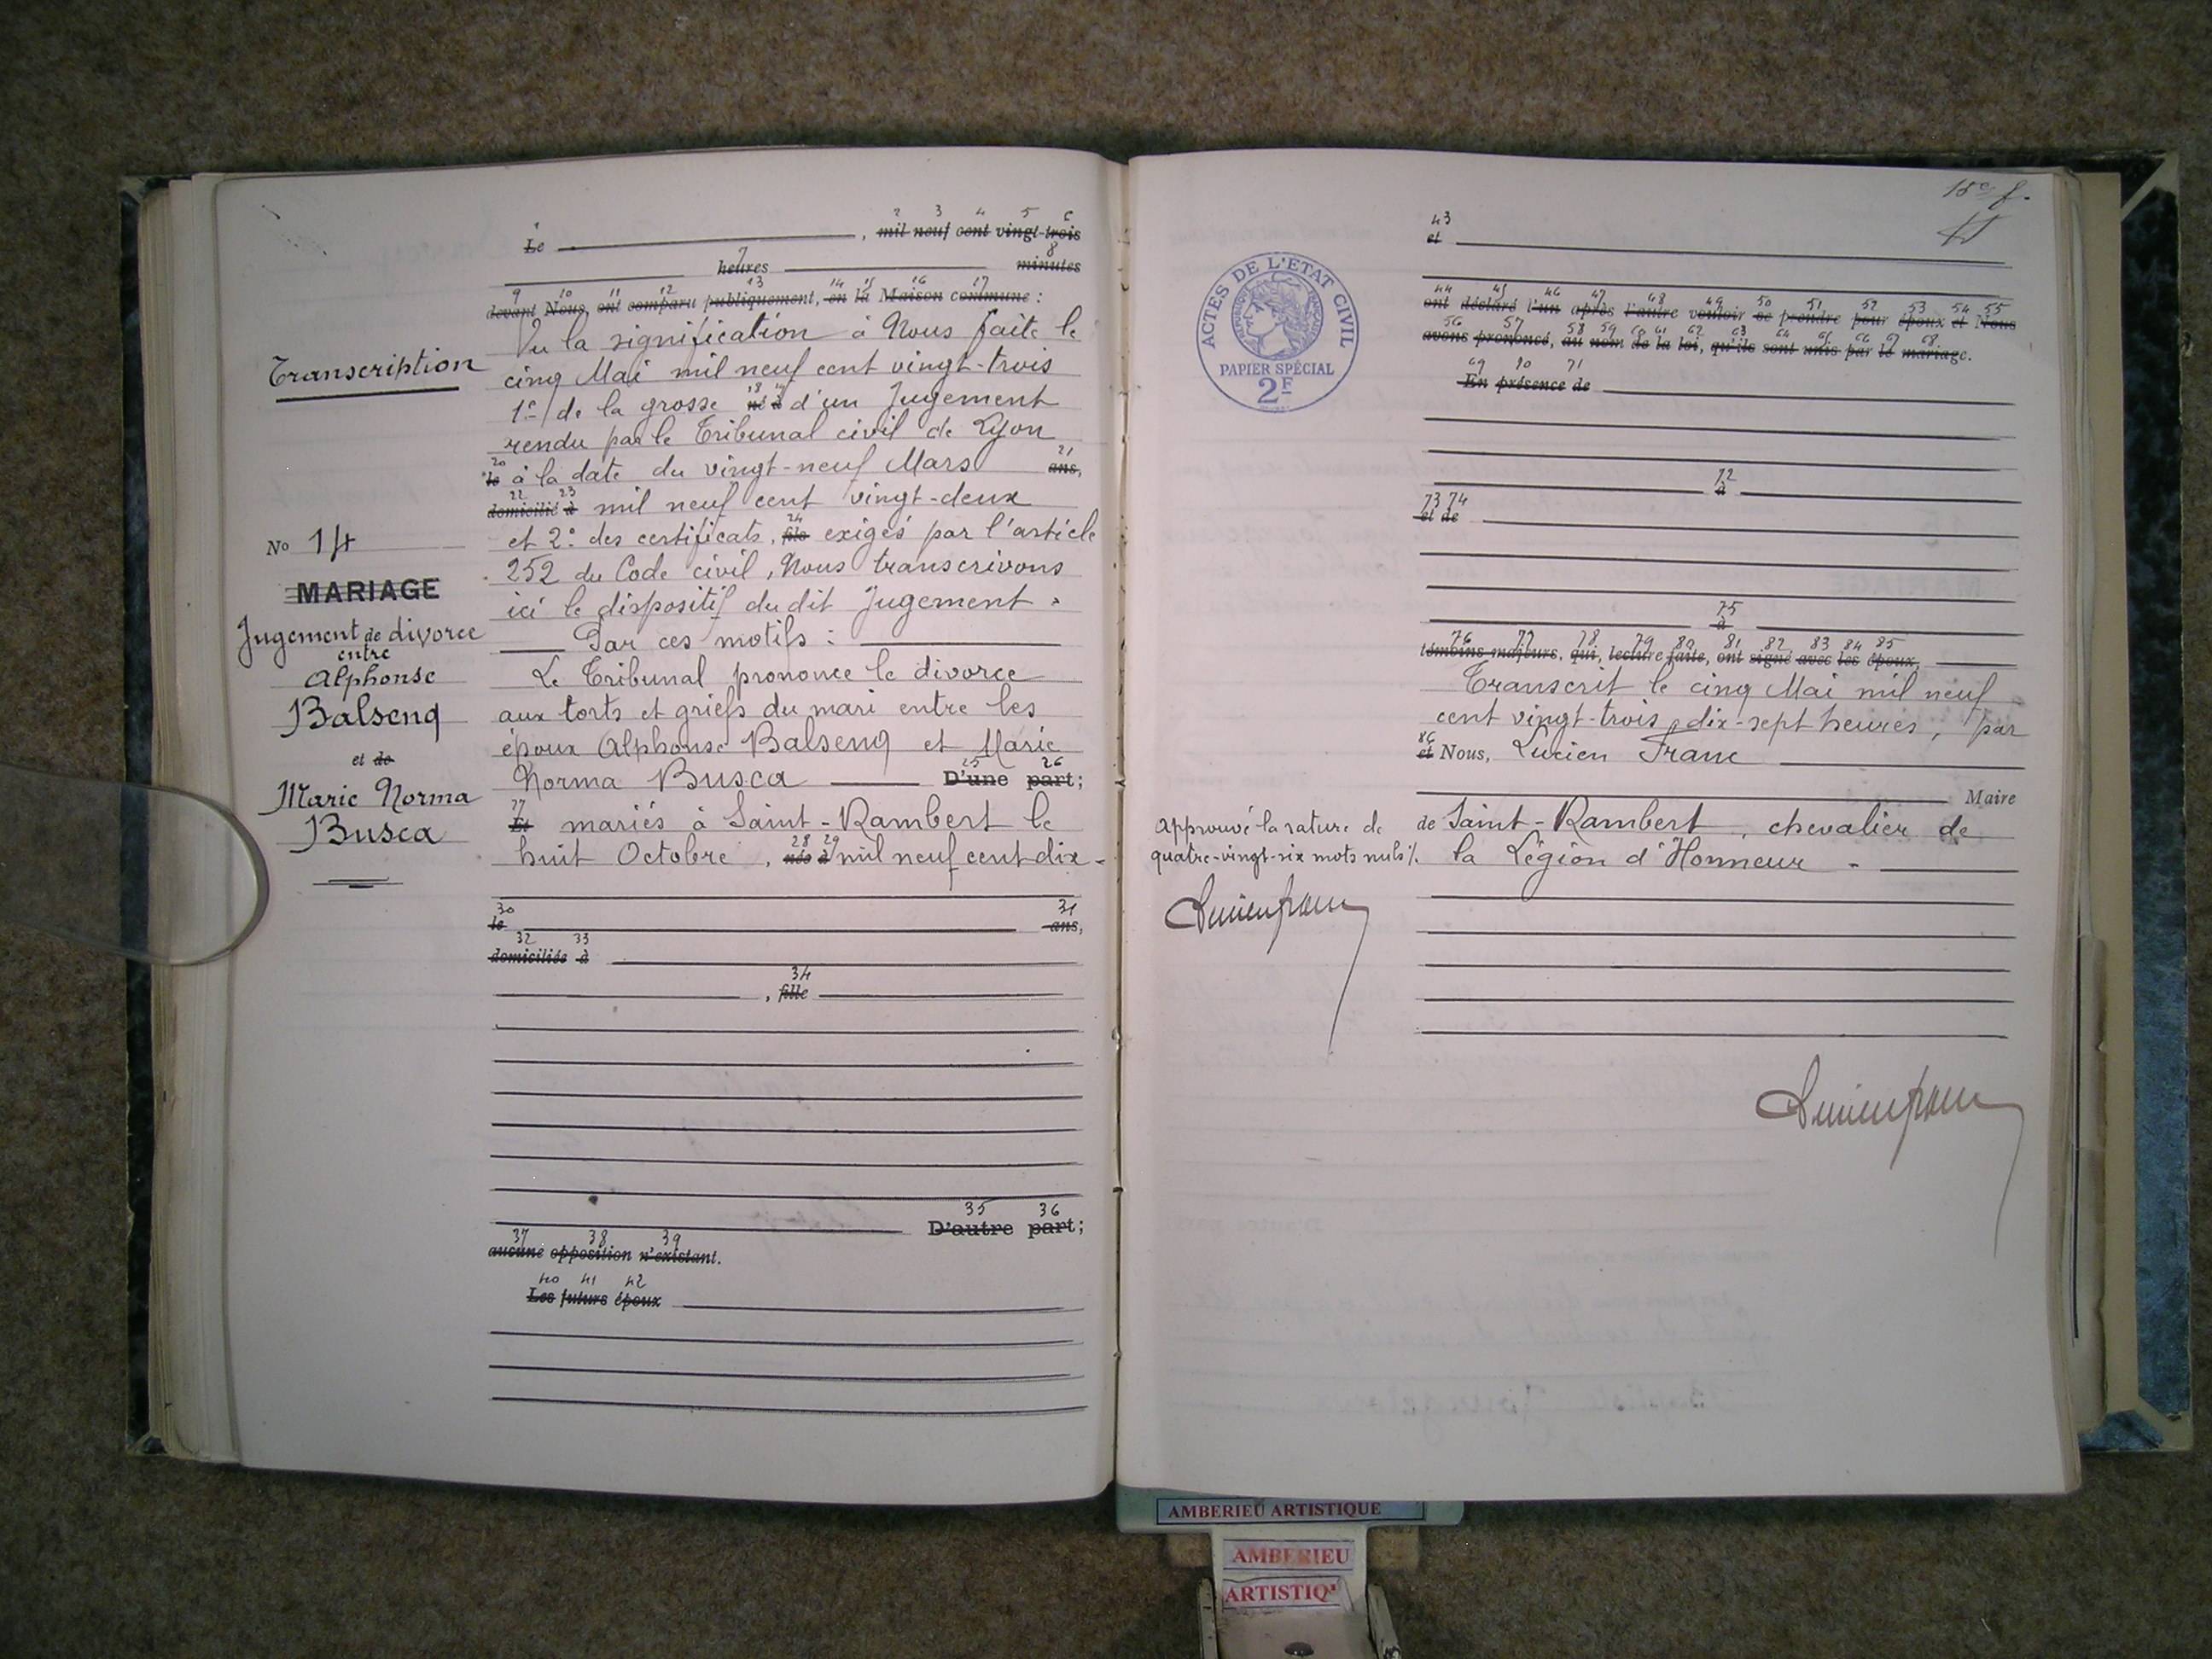 2 3 4 5 6
Le , mil neuf cent vingt-trois
7 8
heures minutes
9 10 11 12 13 14 15 16 17
devant Nous, ont comparu publiquement, en la Maison commune :
Transcription
Vu la signification à Nous faite le
cinq Mai mil neuf cent vingt-trois
18 19
1º/ de la grosse né à d'un Jugement
rendu par le Tribunal civil de Lyon
20 21
le à la date du vingt-neuf Mars ans,
22 23
domicilié à mil neuf cent vingt-deux
24
et 2º des certificats, fils exigés par l'article
252 du Code civil, Nous transcrivons
ici le dispositif du dit Jugement.
Par ces motifs :
Le Tribunal prononce le divorce
aux torts et griefs du mari entre les
époux Alphonse Balsenq et Marie
25 26
Norma Busca D'une part;
27
Et mariés à Saint-Rambert le
28 29
huit Octobre, née à mil neuf cent dix-
30 31
le ans,
32 33
domiciliée à
34
, fille
35 36
D'autre part;
37 38 39
aucune opposition n'existant.
40 41 42
Les futurs époux
No 14
MARIAGE
Jugement de divorce
entre
Alphonse
Balsenq
et de
Marie Norma
Busca
15e f.
43
et
ACTES DE L'ETAT CIVIL
REPUBLIQUE FRANÇAISE
PAPIER SPÉCIAL
2F
44 45 46 47 48 49 50 51 52 53 54 55
ont déclaré l'un après l'autre vouloir se prendre pour époux et Nous
56 57 58 59 60 61 62 63 64 65 66 67 68
avons prononcé, au nom de la loi, qu'ils sont unis par le mariage.
69 70 71
En présence de
72
à
73 74
et de
75
à
76 77 78 79 80 81 82 83 84 85
témoins majeurs, qui, lecture faite, ont signé avec les époux,
Transcrit le cinq Mai mil neuf
cent vingt-trois, dix-sept heures, par
86
et Nous, Lucien Franc
Maire
de Saint-Rambert, chevalier de
la Légion d'Honneur.
Approuvé la rature de
quatre-vingt-six mots nuls /.
Lucien franc
Lucien franc
AMBERIEU ARTISTIQUE
AMBERIEU
ARTISTIQ